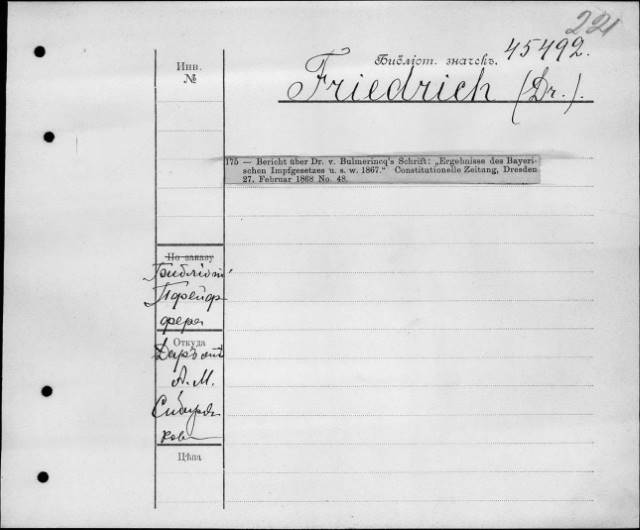 221
Библіот. значекъ. 45492.
Инв.
№
Friedrich (Dr.).
175 — Bericht über Dr. v. Bulmerincq's Schrift: „Ergebnisse des Bayeri-
schen Impfgesetzes u. s. w. 1867.“ Constitutionelle Zeitung, Dresden
27. Februar 1868 No. 48.
По заказу
Библіот.
Пфейф
фера
Откуда
Даръ отъ
А. М.
Сибиря
кова
Цѣна